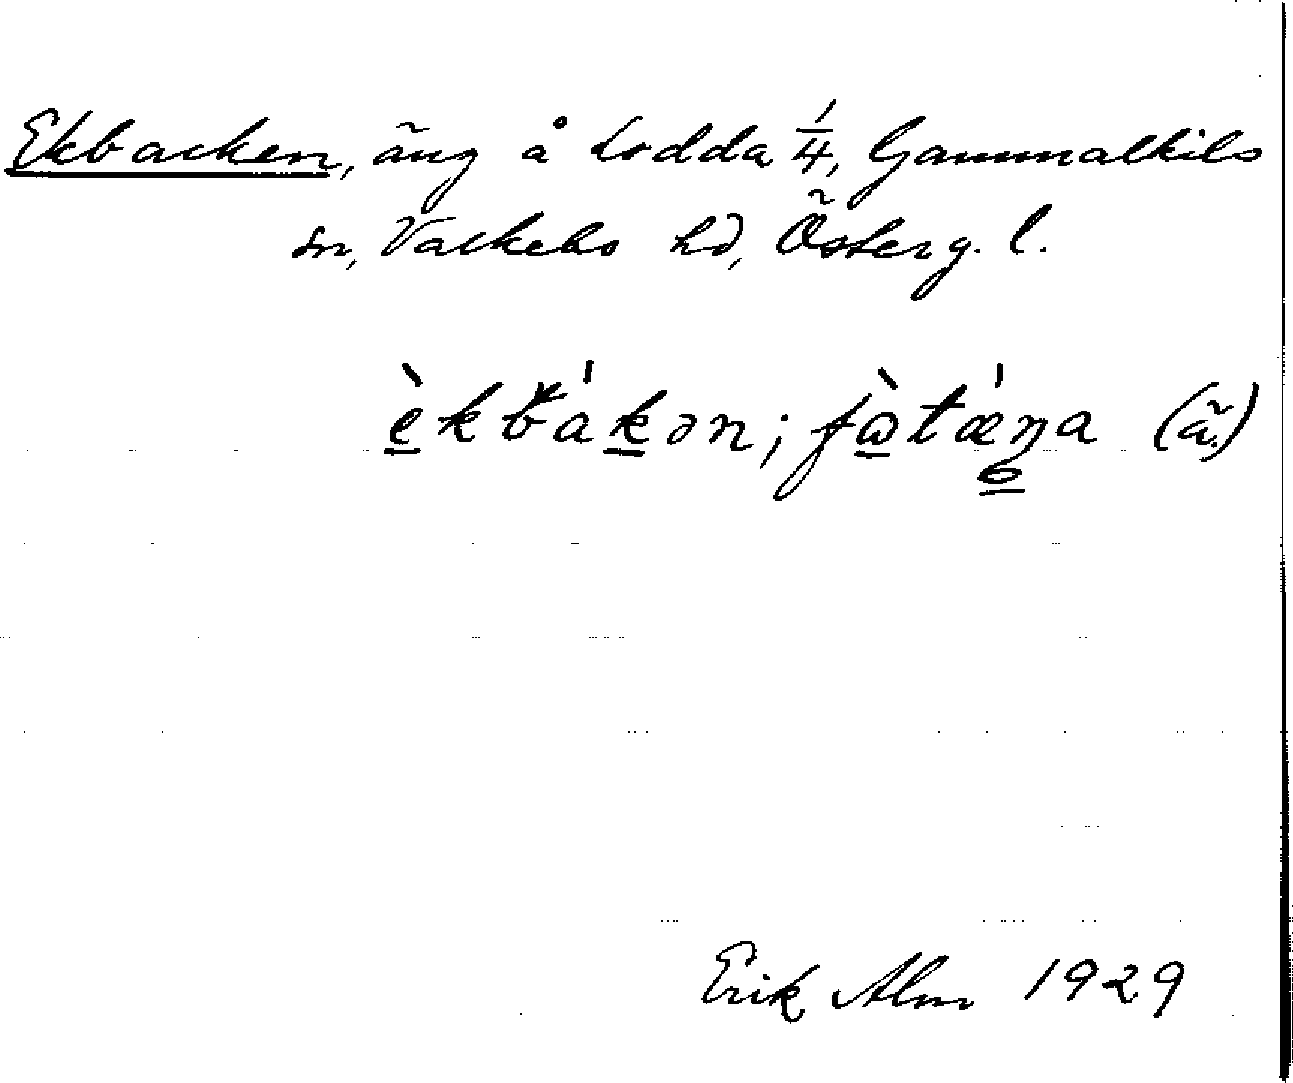 Ekbacken, äng å Lodda 1/4, Gammalkils
sn, Valkebo hd, Österg. l.
èkbákən; fɷ̀tǽŋa (ä.)
Erik Alm 1929